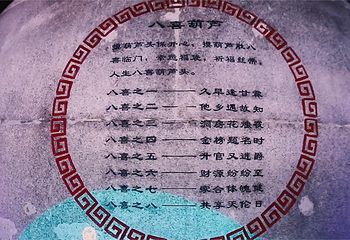 八喜葫芦
摸葫芦头採开心，摸葫芦肚八
喜临门，常跑福旋，祈福丝带，
人生八喜葫芦头。
八喜之一——久旱逢甘霖
八喜之二——他乡遇故知
八喜之三——洞房花烛夜
八喜之四——金榜题名时
八喜之五——升官又进爵
八喜之六——财源纷纷至
八喜之七——家合体魄健
八喜之八——共享天伦日